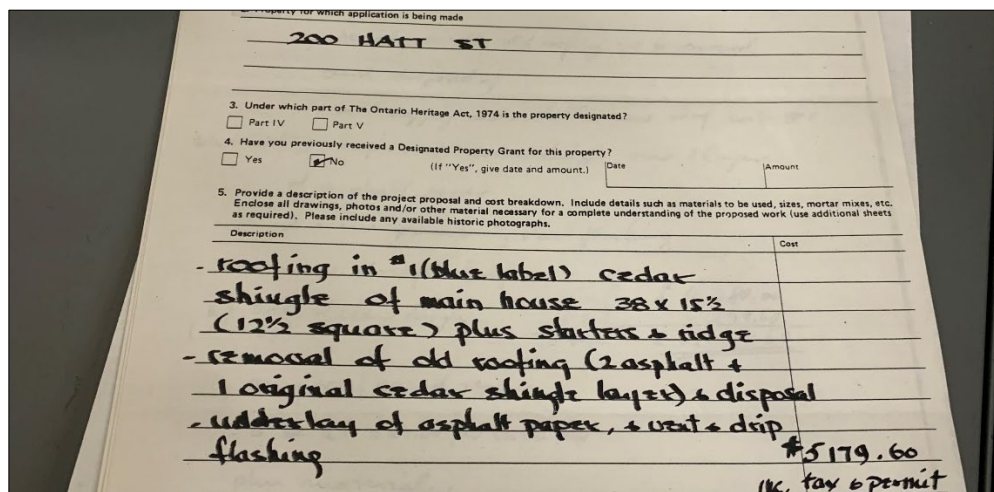 2. Property for which application is being made
200 HATT ST
3. Under which part of The Ontario Heritage Act, 1974 is the property designated?
Part IV Part V
4. Have you previously received a Designated Property Grant for this property?
Yes No (If "Yes", give date and amount.) Date Amount
5. Provide a description of the project proposal and cost breakdown. Include details such as materials to be used, sizes, mortar mixes, etc.
Enclose all drawings, photos and/or other material necessary for a complete understanding of the proposed work (use additional sheets
as required). Please include any available historic photographs.
Description Cost
- roofing in #1 (blue label) cedar
shingle of main house 38 x 15½
(12½ square) plus starters & ridge
- removal of old roofing (2 asphalt +
1 original cedar shingle layer) & disposal
- underlay of asphalt paper, + vent & drip
flashing $5179.60
inc. tax & permit